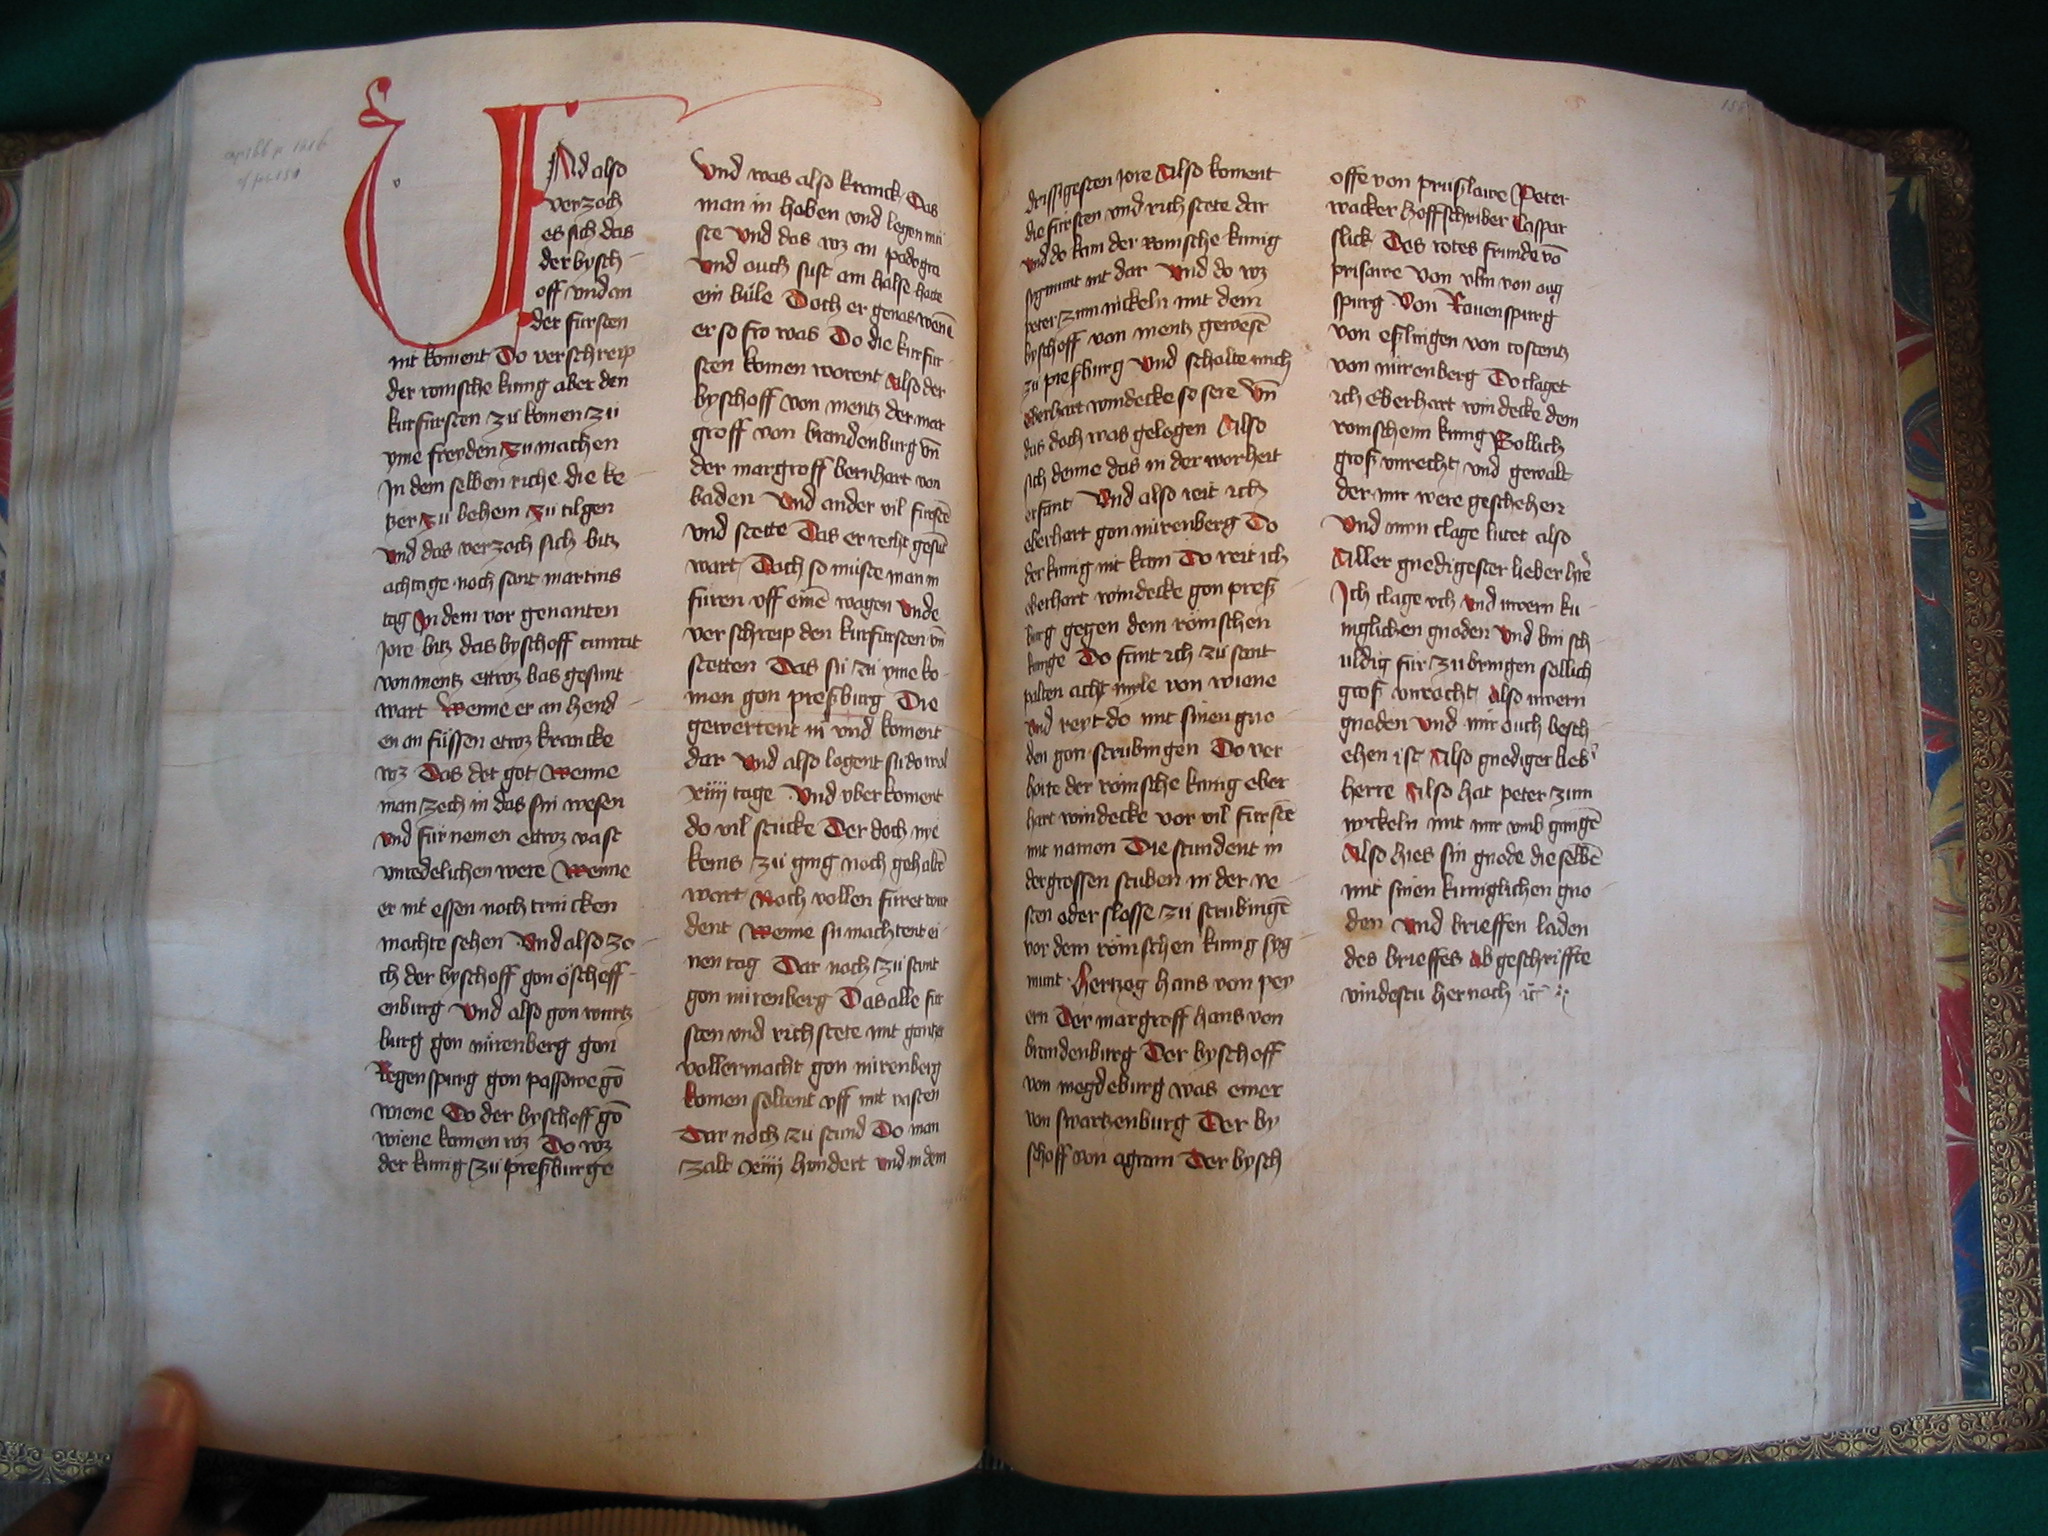 UNd also
verzoch
es sich das
der bysch
off und an
der fursten
nit koment Do verschreip
der romische kunig aber den
kurfursten zu komen zu
yme freyden zu machen
In dem selben riche die ke
tzer zu behem zu tilgen
und das verzoch sich bitz
achtage noch sant martins
tag In dem vor genanten
jore bitz das byschoff cunrat
von mentz ettwz bas gesunt
wart Wenne er an hend
en an füssen etwz krancke
wz Das det got Wenne
man zech in das sin wesen
und für nemen ettwz vast
unredelichen were Wenne
er nit essen noch trincken
mochte sehen Und also zo
ch der byschoff gon öscheff
enburg Und also gon wurtz
burg gon nürenberg gon
Regenspurg gon passowe gō
wiene Do der byschoff gō
wiene komen wz Do wz
der kunig zu preßburge
Und was also kranck Das
man in haben vnd legen mü
ste Und das wz an podogra
Und ouch sust am halse hatte
ein büle Doch er genas wenē
er so fro was Do die kurfur
sten komen worent Also der
byschoff von mentz der mar
groff von brandenburg vn̄
der margroff bernhart von
baden Und ander vil furstē
und stette Das er recht gesūt
wart Doch so müste man in
füren uff einē wagen Unde
verschreip den kurfürsten vn̄
stetten Das sü zü yme ko
men gon preßburg Die
gewertent in und koment
dar Und also logent sü do wol
xiiij tage Und vber koment
do vil stücke Der doch nye
keins zü ging noch gehaltē
wart Noch vollen füret wur
dent Wenne sü machtent ei
nen tag Dar noch zü stunt
gon nürenberg Das alle für
sten und richstete mit gantzer
vollermacht gon nürenberg
komen soltent uff mit vasten
Dar noch zü stund Do man
zalt xiiij hundert und in dem
drissigesten jore Also koment
die fürsten und richstete dar
Und do kam der romische kunig
sygmunt nit dar Und do wz
peter zum nickeln mit dem
byschoff von mentz gewesē
zü preßburg Und schalte mich
eberhart windecke so sere Vn̄
das doch was gelogen Also
sich denne das in der worheit
erfant Und also reit ich
eberhart gon nürenberg Do
der kunig nit kam Do reit ich
eberhart windecke gon preß
burg gegen dem römschen
kunige Do fant ich zü sant
palten acht myle von wiene
und reyt do mit sinen gno
den gon strubingen Do ver
horte der römsche kunig eber
hart windecke vor vil furstē
mit namen Die stundent in
der grossen stuben in der ve
sten oder slosse zü strubingē
vor dem römschen kunig syg
munt Hertzog hans von pey
ern Der margroff hans von
brandenburg Der byschoff
von megdeburg was einer
von swartzenburg Der by
schoff von agram Der bysch
offe von prüslawe Peter
wacker hoffschriber Caspar
slick Des rotes frunde vō
prisawe von ulm von oug
spurg Von Rauenspurg
von eßlingen von costentz
von nürenberg Do claget
ich Eberhart windecke dem
romschenn kunig Sollich
groß unrecht und gewalt
der mir were geschehen
Und myn clage lutet also
Aller gnedigester lieber h're
Ich clage uch und uwern ku
niglichen gnoden Und bin sch
uldig für zü bringen sollich
groß unrecht Also uwern
gnoden Und mir ouch besch
ehen ist Also gnediger lieb'
herre Also hat peter zum
nyckeln mit mir umb gangē
Also hies sin gnode die selbē
mit sinen kuniglichen gno
den Und brieffen laden
des brieffes Abgeschriffte
vindestu hernoch